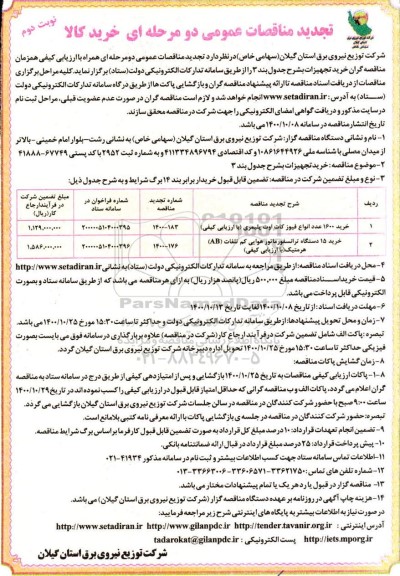 نوبت دوم
تجدید مناقصات عمومی دو مرحله ای خرید کالا
شرکت توزیع نیروی برق استان گیلان (سهامی خاص) در نظر دارد تجدید مناقصات عمومی دومرحله ای همراه با ارزیابی کیفی همزمان
مناقصه گران خرید تجهیزات بشرح جدول بند ۳ را از طریق سامانه تدارکات الکترونیکی دولت (ستاد) برگزار نماید. کلیه مراحل برگزاری
مناقصات از دریافت اسناد مناقصه تا ارائه پیشنهاد مناقصه گران و بازگشایی پاکت ها از طریق درگاه سامانه تدارکات الکترونیکی دولت
(ستاد) به آدرس: www.setadiran.ir انجام خواهد شد و لازم است مناقصه گران در صورت عدم عضویت قبلی، مراحل ثبت نام
در سایت مذکور و دریافت گواهی امضای الکترونیکی را جهت شرکت در مناقصه محقق سازند.
تاریخ انتشار مناقصه در سامانه ۱۴۰۰/۱۰/۰۸ می باشد.
۱- نام و نشانی دستگاه مناقصه گزار: شرکت توزیع نیروی برق استان گیلان (سهامی خاص) به نشانی رشت- بلوار امام خمینی- بالاتر
از میدان مصلی با شناسه ملی ۱۰۸۶۱۶۴۴۹۲۶ و کد اقتصادی ۴۱۱۳۳۴۸۹۶۷۹۴ و به شماره ثبت ۲۹۵۲ با کد پستی ۴۱۸۸۸-۶۷۷۴۹
۲- موضوع مناقصه: خرید تجهیزات بشرح جدول بند ۳
۳- نوع و مبلغ تضمین شرکت در مناقصه: تضمین قابل قبول خریدار برابر بند ۱۴ برگ شرایط و به شرح جدول ذیل:
ردیف شرح تجدید مناقصه شماره تجدید مناقصه شماره فراخوان در سامانه ستاد مبلغ تضمین شرکت در فرآیند ارجاع کار (ریال)
۱ خرید ۱۶۰۰ عدد انواع فیوز کات اوت پلیمری (با ارزیابی کیفی) ۱۴۰۰-۱۸۳ ۲۰۰۰۰۰۵۱۰۴۰۰۰۳۹۵ ۱,۱۲۹,۰۰۰,۰۰۰
۲ خرید ۱۵ دستگاه ترانسفورماتور هوایی کم تلفات (AB) هرمتیک (با ارزیابی کیفی) ۱۴۰۰-۱۷۶ ۲۰۰۰۰۰۵۱۰۴۰۰۰۳۹۶ ۱,۵۸۶,۰۰۰,۰۰۰
۴- محل دریافت اسناد مناقصه: از طریق مراجعه به سامانه تدارکات الکترونیکی دولت (ستاد) به نشانی http://www.setadiran.ir
۵- قیمت خرید اسناد مناقصه مبلغ ۵۰۰,۰۰۰ ریال (پانصد هزار ریال) به ازای هر مناقصه می باشد که از طریق سامانه ستاد و بصورت
الکترونیکی قابل پرداخت می باشد.
۶- مهلت دریافت اسناد: از تاریخ ۱۴۰۰/۱۰/۰۸ لغایت تاریخ ۱۴۰۰/۱۰/۱۳
۷- زمان و محل تحویل پیشنهادها: از طریق سامانه تدارکات الکترونیکی دولت و حداکثر تا ساعت ۱۵:۳۰ مورخ ۱۴۰۰/۱۰/۲۵ می باشد.
تبصره: پاکت الف شامل تضمین شرکت در فرآیند ارجاع کار (شرکت در مناقصه) علاوه بر بارگذاری در سامانه فوق می بایست بصورت
فیزیکی حداکثر تا ساعت ۱۵:۳۰ مورخ ۱۴۰۰/۱۰/۲۵ تحویل امور دبیرخانه شرکت توزیع نیروی برق استان گیلان گردد.
۸- زمان گشایش پاکات مناقصه:
۸-۱- پاکات ارزیابی کیفی مناقصات به تاریخ ۱۴۰۰/۱۰/۲۵ بازگشایی و پس از امتیازدهی کیفی از طریق درج در سامانه ستاد به مناقصه
گران اعلام می گردد، پاکات الف و ب مناقصه گرانی که حداقل امتیاز قابل قبول در ارزیابی کیفی را کسب نموده اند در تاریخ ۱۴۰۰/۱۰/۲۹
ساعت ۹:۰۰ صبح با حضور شرکت کنندگان در مناقصه در سالن جلسات شرکت توزیع نیروی برق استان گیلان بازگشایی می گردد.
تبصره: حضور شرکت کنندگان در مناقصه در جلسه ی بازگشایی پاکات با ارائه معرفی نامه کتبی بلامانع است.
۹- تضمین انجام تعهدات قرارداد: ۱۰ درصد مبلغ کل قرارداد به صورت تضمین قابل قبول کارفرما براساس برگ شرایط مناقصه.
۱۰- پیش پرداخت قرارداد: ۲۵ درصد مبلغ قرارداد در قبال ارائه ضمانتنامه بانکی.
۱۱- اطلاعات تماس سامانه ستاد جهت کسب اطلاعات بیشتر و ثبت نام در سامانه مذکور ۴۱۹۳۴-۰۲۱
۱۲- شماره تلفن های تماس: ۳۳۶۲۱۷۵۰-۳۳۶۰۶۵۷۱-۳۳۶۶۳۰۰۶-۰۱۳
۱۳- مناقصه گزار در قبول یا رد هر یک یا تمام پیشنهادات مختار می باشد.
۱۴- هزینه چاپ آگهی در روزنامه بر عهده دستگاه مناقصه گزار (شرکت توزیع نیروی برق استان گیلان) می باشد.
در صورت نیاز به اطلاعات بیشتر به پایگاه های اینترنتی شرح زیر مراجعه فرمایید:
آدرس اینترنتی: http://www.setadiran.ir http://www.gilanpdc.ir http://tender.tavanir.org.ir
http://iets.mporg.ir پست الکترونیکی: tadarokat@gilanpdc.ir
شرکت توزیع نیروی برق استان گیلان